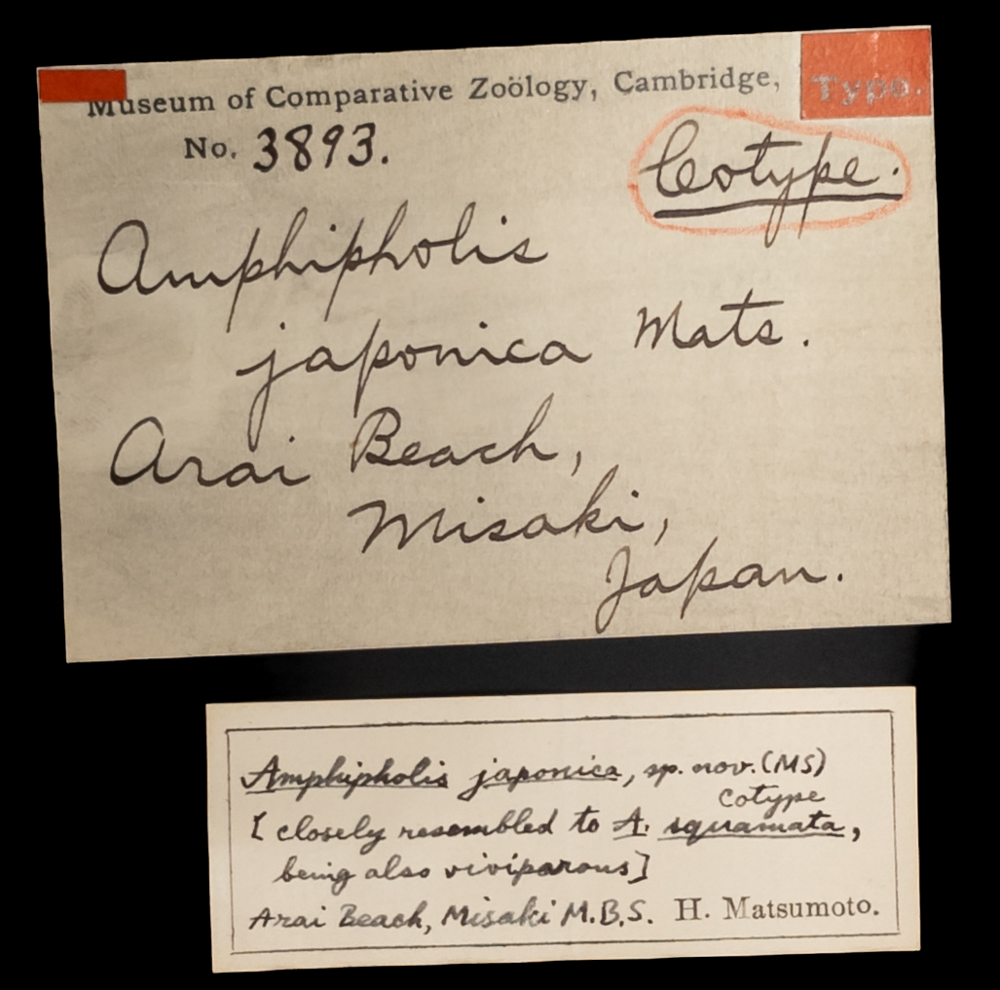 Museum of Comparative Zoölogy, Cambridge,
Type.
No. 3893.
Cotype.
Amphipholis
japonica Mats.
Arai Beach,
Misaki,
Japan.
Amphipholis japonica, sp. nov. (MS)
cotype
[closely resembled to A. squamata,
being also viviparous]
Arai Beach, Misaki M.B.S. H. Matsumoto.